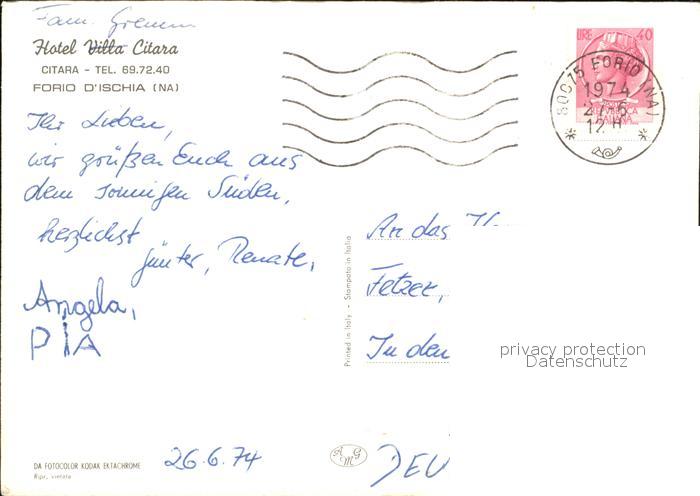 Fam. Gremm
Hotel Villa Citara
CITARA - TEL. 69.72.40
FORIO D'ISCHIA (NA)
Ihr Lieben,
wir grüßen Euch aus
dem sonnigen Süden,
herzlichst
Günter, Renate,
Angela,
PiA
26.6.74
DA FOTOCOLOR KODAK EKTACHROME
Ripr. vietata
Printed in Italy - Stampato in Italia
AMG
LIRE 40
80075 FORIO (NA)
1974
27 6
12 H
An das
Fetzer,
In den
DEU
privacy protection
Datenschutz